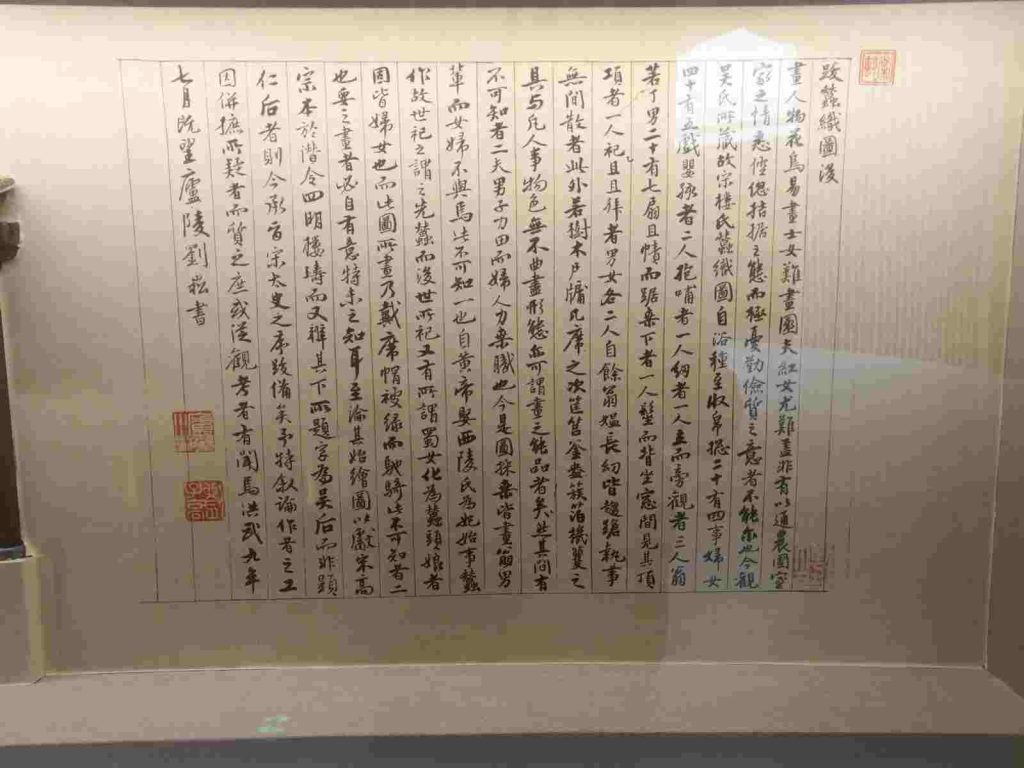 跋蠶織圖後
畫人物花鳥易畫士女難畫園夫紅女尤難蓋非有以通農圃室
家之情悉倥偬拮据之態而極憂勤儉質之意者不能爾也今觀
吳氏所藏故宗樓氏蠶織圖自浴種至收帛總二十有四事婦女
四十有五戲嬰孩者二人抱哺者一人幼者一人立而旁觀者三人翁
若丁男二十有七扇且幘而踞桑下者一人髽而背坐窓間見其頂
項者一人祀且拜者男女各二人自餘翁媼長幼皆趨蹌執事
無間散者此外若樹木戶牖几席之次筐筥釜甑簇箔機籰之
具與凡人事物色無不曲盡形態亦可謂畫之能品者矣然其間有
不可知者二夫男子力田而婦人力桑職也今是圖採桑皆畫筋男
輩而女婦不與焉此不可知一也自黃帝娶西陵氏為妃始事蠶
作故世祀之謂之先蠶而後世所祀又有所謂蜀女化為蠶頭娘者
固皆婦女也而此圖所畫乃戴席帽披綠而馳騎此不可知者二
也要之畫者必自有意特未之知耳至論其始繪圖以獻宋高
宗本於潛令四明樓璹而又辨其下所題字為吳后而非顯
仁后者則今承旨宋太史之序跋備矣予特敘論作者之工
因併摭所疑者而質之庶或從觀考者有聞焉洪武九年
七月既望廬陵劉崧書